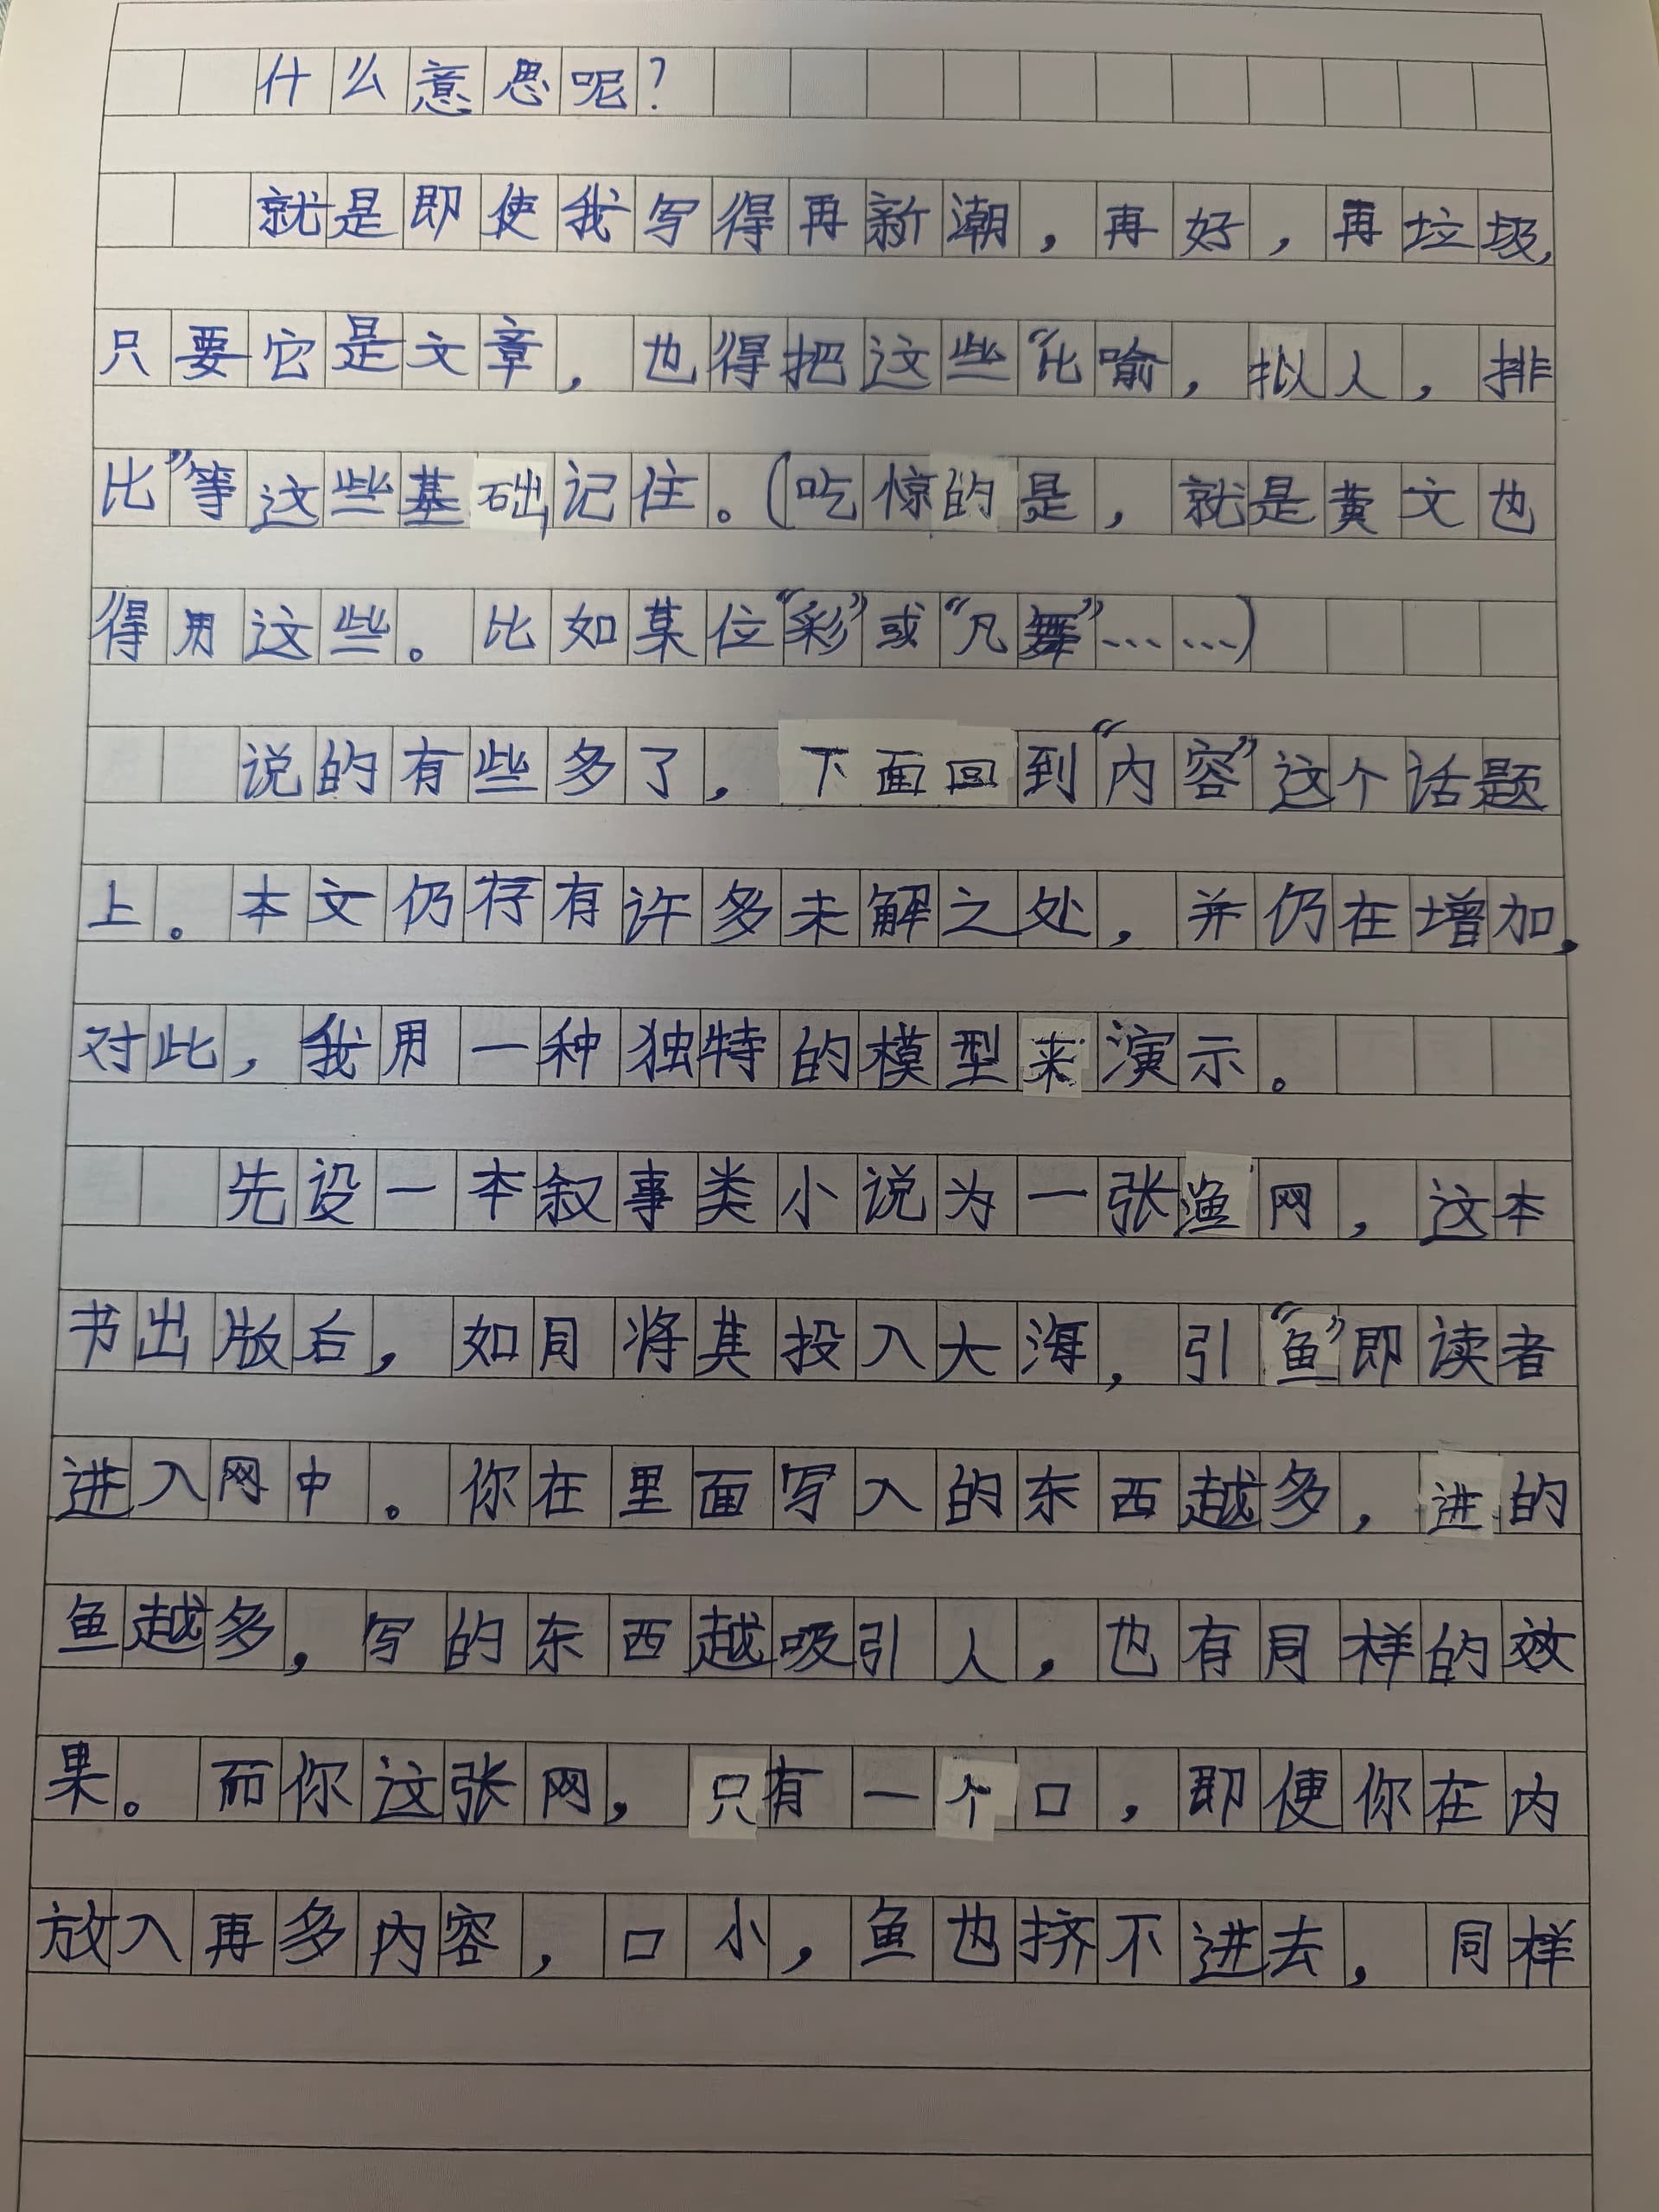 什么意思呢？
就是即使我写得再新潮，再好，再垃圾，
只要它是文章，也得把这些“比喻，拟人，排
比”等这些基础记住。（吃惊的是，就是黄文也
得用这些。比如某位“彩”或“凡舞”……）
说的有些多了，下面回到“内容”这个话题
上。本文仍存有许多未解之处，并仍在增加，
对此，我用一种独特的模型来演示。
先设一本叙事类小说为一张渔网，这本
书出版后，如同将其投入大海，引“鱼”即读者
进入网中。你在里面写入的东西越多，进的
鱼越多，写的东西越吸引人，也有同样的效
果。而你这张网，只有一个口，即便你在内
放入再多内容，口小，鱼也挤不进去，同样